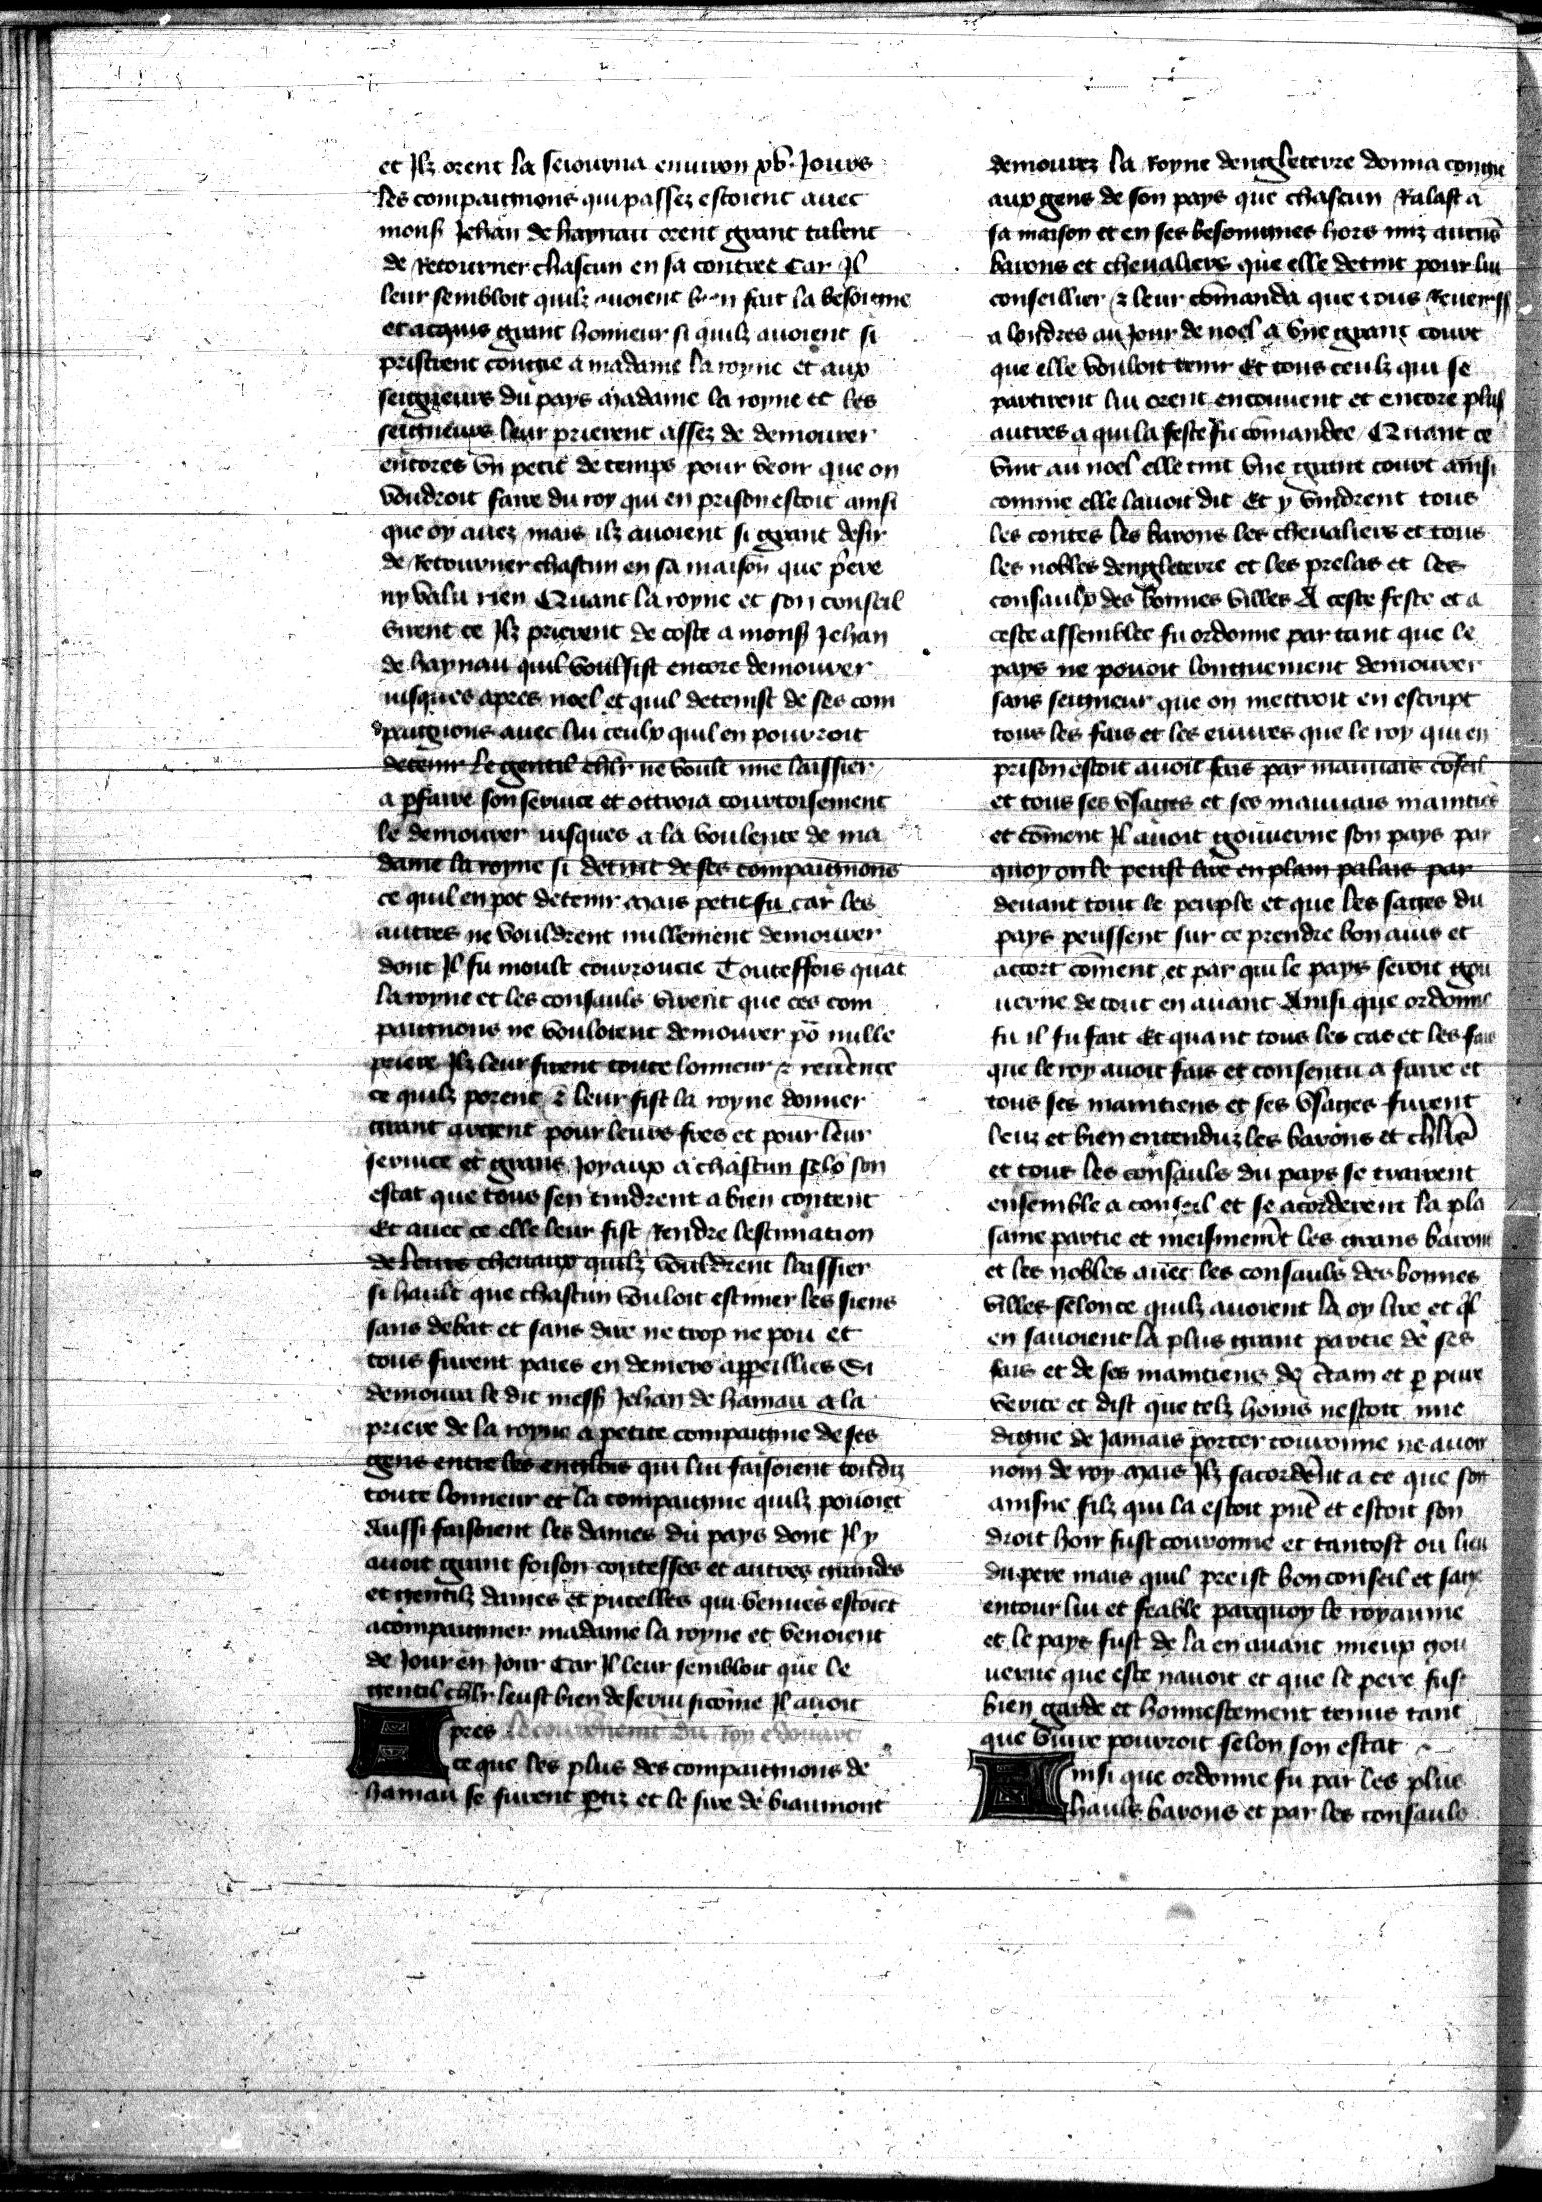 et Jlz orent la seiourna enuiron xv. Jours
les compaignons qui passez estoient auec
monsʳ Jehan de haynau orent grant talent
de Retourner chascun en sa contree Car Jl
leur sembloit quilz auoient bien fait la besoigne
et acquis grant honneur si quilz auoient si
pristrent congie a madame la royne et aux
seigneurs du pays Madame la royne et les
seigneurs leur prierent assez de demourer
encores vn petit de temps pour veoir que on
voudroit faire du roy qui en prison estoit ainsi
que oy auez mais ilz auoient si grant desir
de Retourner chascun en sa maison que pͥere
ny valu rien Quant la royne et son conseil
virent ce Jlz prierent de coste a monsʳ Jehan
de haynau quil voulsist encore demourer
iusques apres noel et quil detenist de ses com
paignons auec lui ceulx quil en pourroit
detenir Le gentil chl̅r ne voult mie laissier
a ꝑfaire son seruice et ottroia courtoisement
le demourer iusques a la voulente de ma
dame la royne si detint de ses compaignons
ce quil en pot detenir Mais petit fu car les
autres ne vouldrent nullement demourer
dont Jl fu moult courroucie Touteffois quāt
la royne et les consauls virent que ces com
paignons ne vouloient demourer po̅ nulle
priere Jlz leur firent toute lonneur ⁊ reue̅nce
ce quilz porent ⁊ leur fist la royne donner
grant argent pour leurs fres et pour leur
seruice et grans Joyaux a chascun selo̅ son
estat que tous sen tindrent a bien content
Et auec ce elle leur fist Rendre lestimation
de leurs cheuaux quilz vouldrent laissier
si hault que chascun vouloit estimer les siens
sans debat et sans dire ne trop ne pou et
tous furent paies en deniers apꝑeillies Si
demoura le dit messʳ Jehan de hainau a la
priere de la royne a petite compaignie de ses
gens entre les englois qui lui faisoient toudiz
toute lonneur et la compaignie quilz pouoiēt
Aussi faisoient les dames du pays dont Jl y
auoit grant foison contesses et autres grandes
et gentilz dames et pucelles qui venues estoiēt
acompaignier madame la royne et venoient
de Jour en Jour Car Jl leur sembloit que le
gentil chl̅r leust bien deserui sicōme Jl auoit
Apres le couronnemt du roy edouart
ce que les plus des compaignons de
hainau se furent ꝑtiz et le sire de biaumont
demourez la Royne dengleterre donna congie
aux gens de son pays que chascun Ralast a
sa maison et en ses besoingnes hors mis aucūs
barons et cheualiers que elle detint pour lui
conseillier ⁊ leur cōmanda que tous
a londres au Jour de noel a vne grant court
que elle vouloit tenir Et tous ceulz qui se
partirent lui orent encouuent et encore plus
autres a qui la feste fu cōmandee Quant ce
vint au noel elle tint vne grant court ainsi
comme elle lauoit dit Et y vindrent tous
les contes les barons les cheualiers et tous
les nobles dengleterre et les prelas et les
consaulx des bonnes villes A ceste feste et a
ceste assemblee fu ordonne par tant que le
pays ne pouoit longuement demourer
sans seigneur que on mettroit en escript
tous les fais et les euures que le roy qui en
prison estoit auoit fais par mauuais cōseil
et tous ses vsages et ses mauuais maintiēs
et cōment Jl auoit gouuerne son pays par
quoy on le peust lire en plain palais par
deuant tout le peuple et que les sages du
pays peussent sur ce prendre bon auis et
accort cōment et par qui le pays seroit gou
uerne de tout en auant Ainsi que ordonne
fu il fu fait Et quant tous les cas et les fais
que le roy auoit fais et consentu a faire et
tous ses maintiens et ses vsages furent
leuz et bien entenduz les barons et chl̅rs
et tous les consauls du pays se trairent
ensemble a conseil et se acorderent la plā
saine partie et meismem̅t les grans barons
et les nobles auec les consauls des bonnes
villes selon ce quilz auoient la oy lire et ql̅
en sauoient la plus grant partie de ses
fais et de ses maintiens certam et ꝑ pure
verite et dist que telz homs nestoit mie
digne de Jamais porter couronne ne auoir
nom de roy Mais Jlz sacorder̅t a ce que son
ainsne filz qui la estoit pn̅t et estoit son
droit hoir fust couronne et tantost ou lieu
du pere mais quil preist bon conseil et sage
entour lui et feable parquoy le royaume
et le pays fust de la en auant mieux gou
uerne que este nauoit et que le pere fust
bien garde et honnestement tenus tant
que viure pourroit selon son estat
Ainsi que ordonne fu par les plus
hauls barons et par les consauls